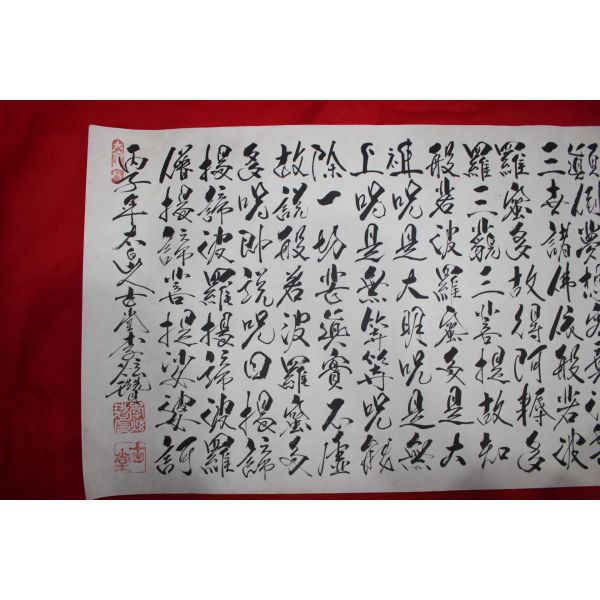 顛倒夢想究竟涅槃
三世諸佛依般若波
羅蜜多故得阿耨多
羅三藐三菩提故知
般若波羅蜜多是大
神呪是大明呪是無
上呪是無等等呪能
除一切苦眞實不虛
故說般若波羅蜜多
多呪卽說呪曰揭諦
揭諦波羅揭諦波羅
僧揭諦菩提娑婆訶
丙子年太白山人古堂李